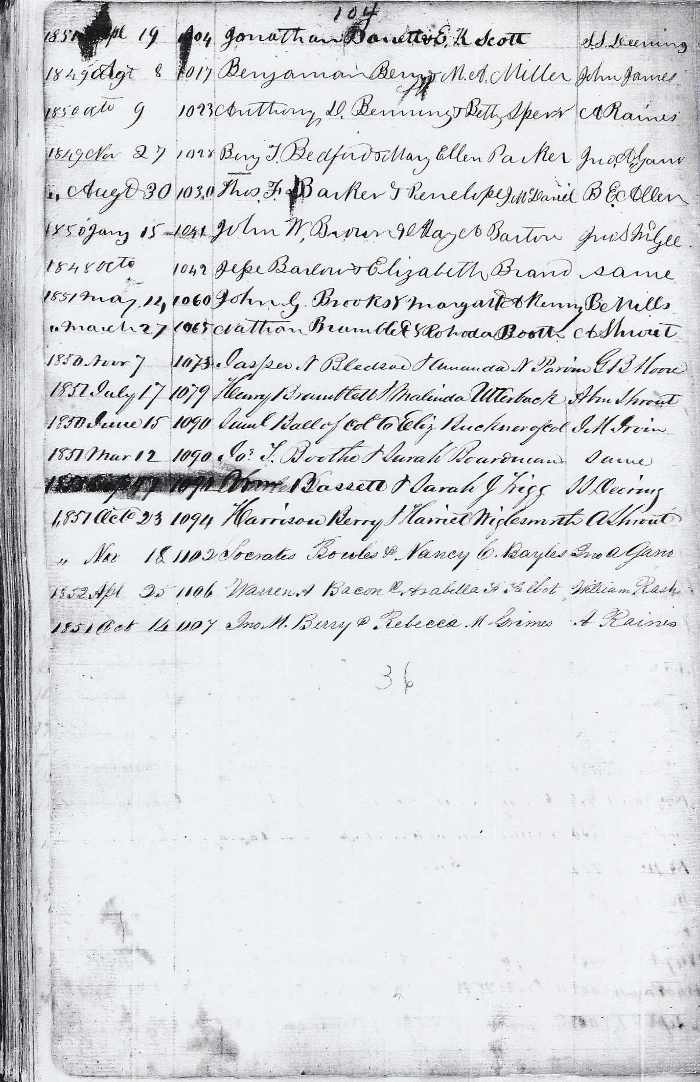 104
1851 Sept 19 1004 Jonathan Barrett & E. K Scott S. S. Deering
1849 Agt 8 1017 Benjaman Berry & M. A. Miller John James
1850 octo 9 1023 Anthony D. Benning & Betty Speers A Raines
1849 Nov 27 1028 Benj T. Bedford & Mary Ellen Parker Jno. A. Gano
" Augd 30 1030 Thos. F. Barker & Penelope McDaniel B. E. Allen
1850 Jany 15 1041 John W, Brown & Barton Jno S McGee
1848 octo 1042 Jesse Barlow & Elizabeth Brand same
1851 may 12, 1060 John G. Brooks & margaret A Kenny B Mills
" March 27 1065 Nathan Bramblet & Rohoda Booth A Shrout
1850 Novr 7 1075 Jasper N Bledsoe & Amanda N Parvin G B Moore
1851 July 17 1079 Henry Bramblett & Malinda Utterback Abm Shrout
1850 June 15 1090 Saml Ball of col to Eliz Buckner of col J. H Irvin
1851 Mar 12 1090 Jos. T. Boothe & Sarah Boardman same
17 Wm Bassett & Sarah J Trigg SS Deering
1851 Octo 23 1094 Harrison Berry & Harriet Wiglesworth A Shrout
" Nov 18 1102 Socrates Bowles & Nancy C. Bayles Jno A Gano
1852 Apl 25 1106 Warren A Bacon & Arabella A. William Rash
1851 Oct 14 1107 Jno. M. Berry & Rebecca M Grimes A Raines
36